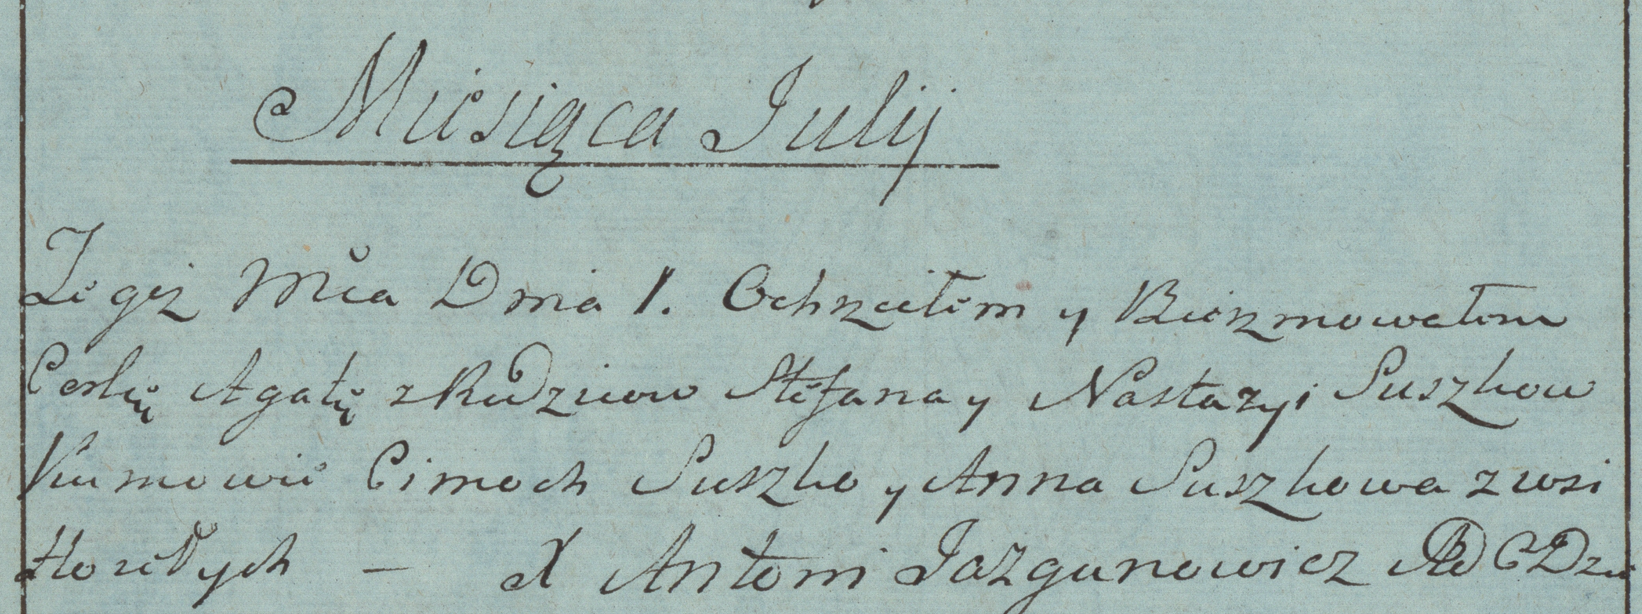 Miesiąca Julij
Tegoż Mca Dnia 1. Ochrzciłem y Bierzmowałem
Corkię Agatię z Rodzicow Stefana y Nastazyi Suszkow
Kumowie Cimoch Suszko y Anna Suszkowa z wsi
— X Antoni Jazgunowicz